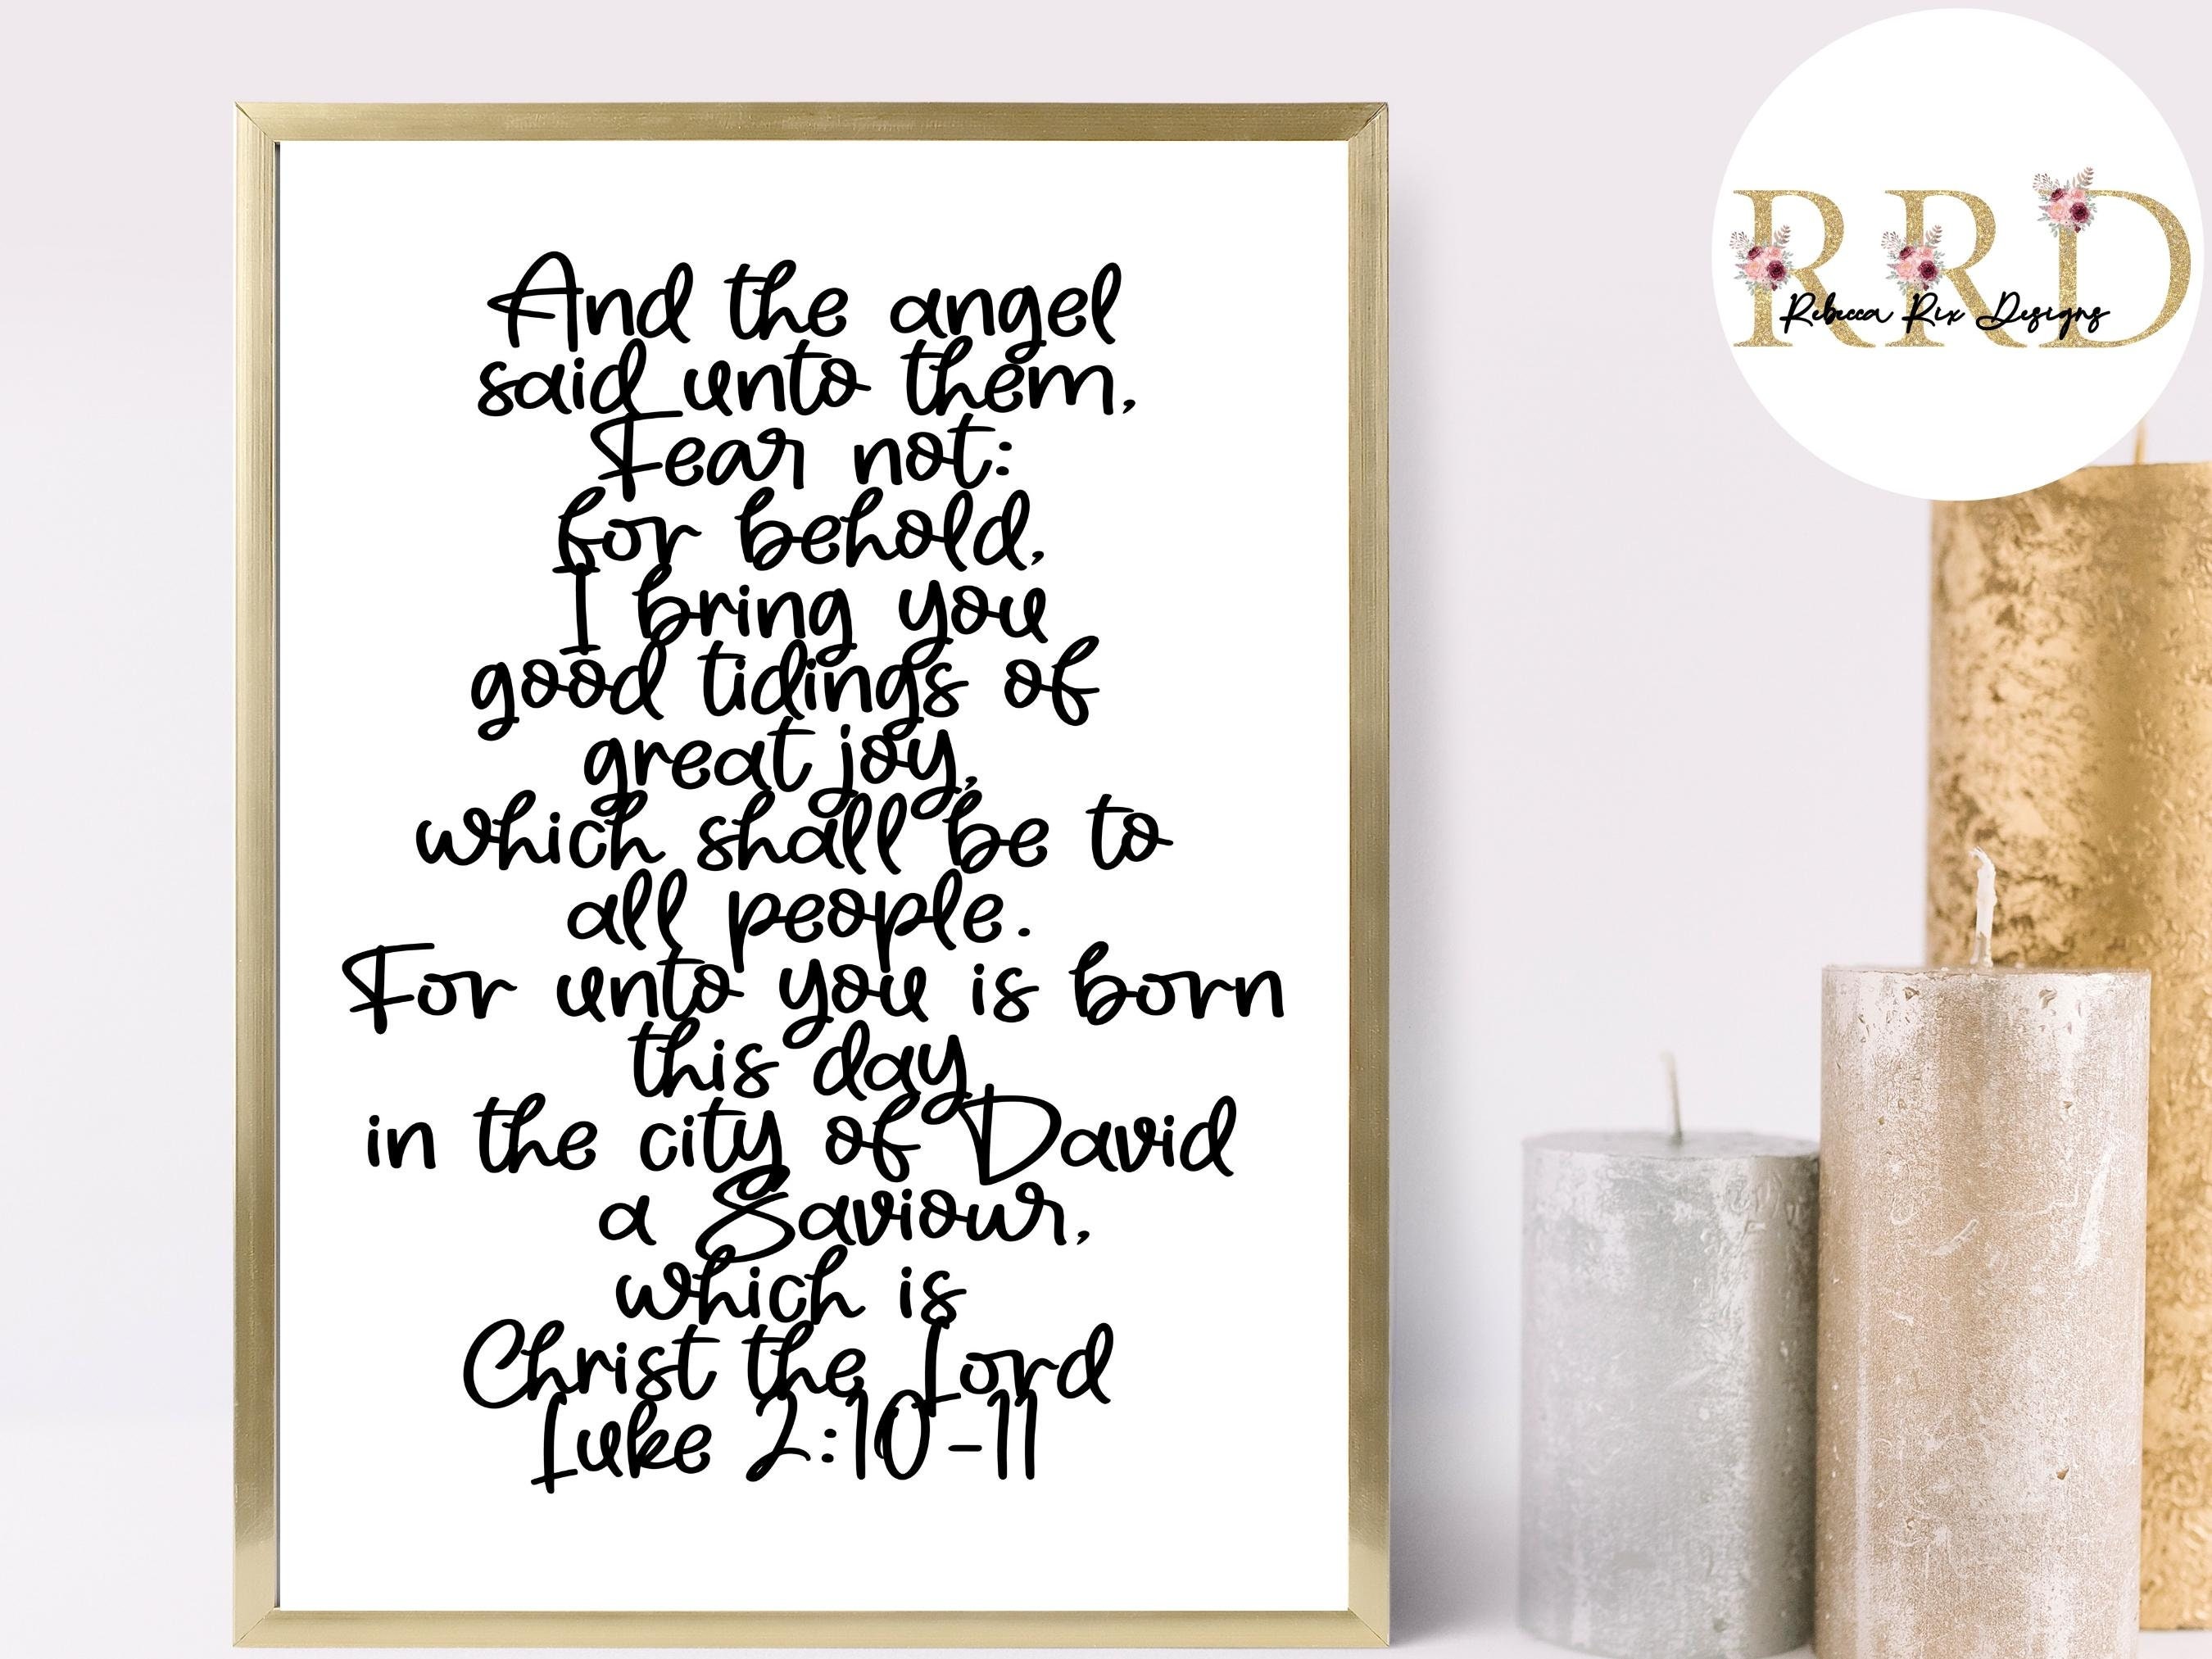 And the angel
said unto them,
Fear not:
for behold,
I bring you
good tidings of
great joy,
which shall be to
all people.
For unto you is born
this day
in the city of David
a Saviour,
which is
Christ the Lord
Luke 2:10-11
RRD
Rebecca Rix Designs